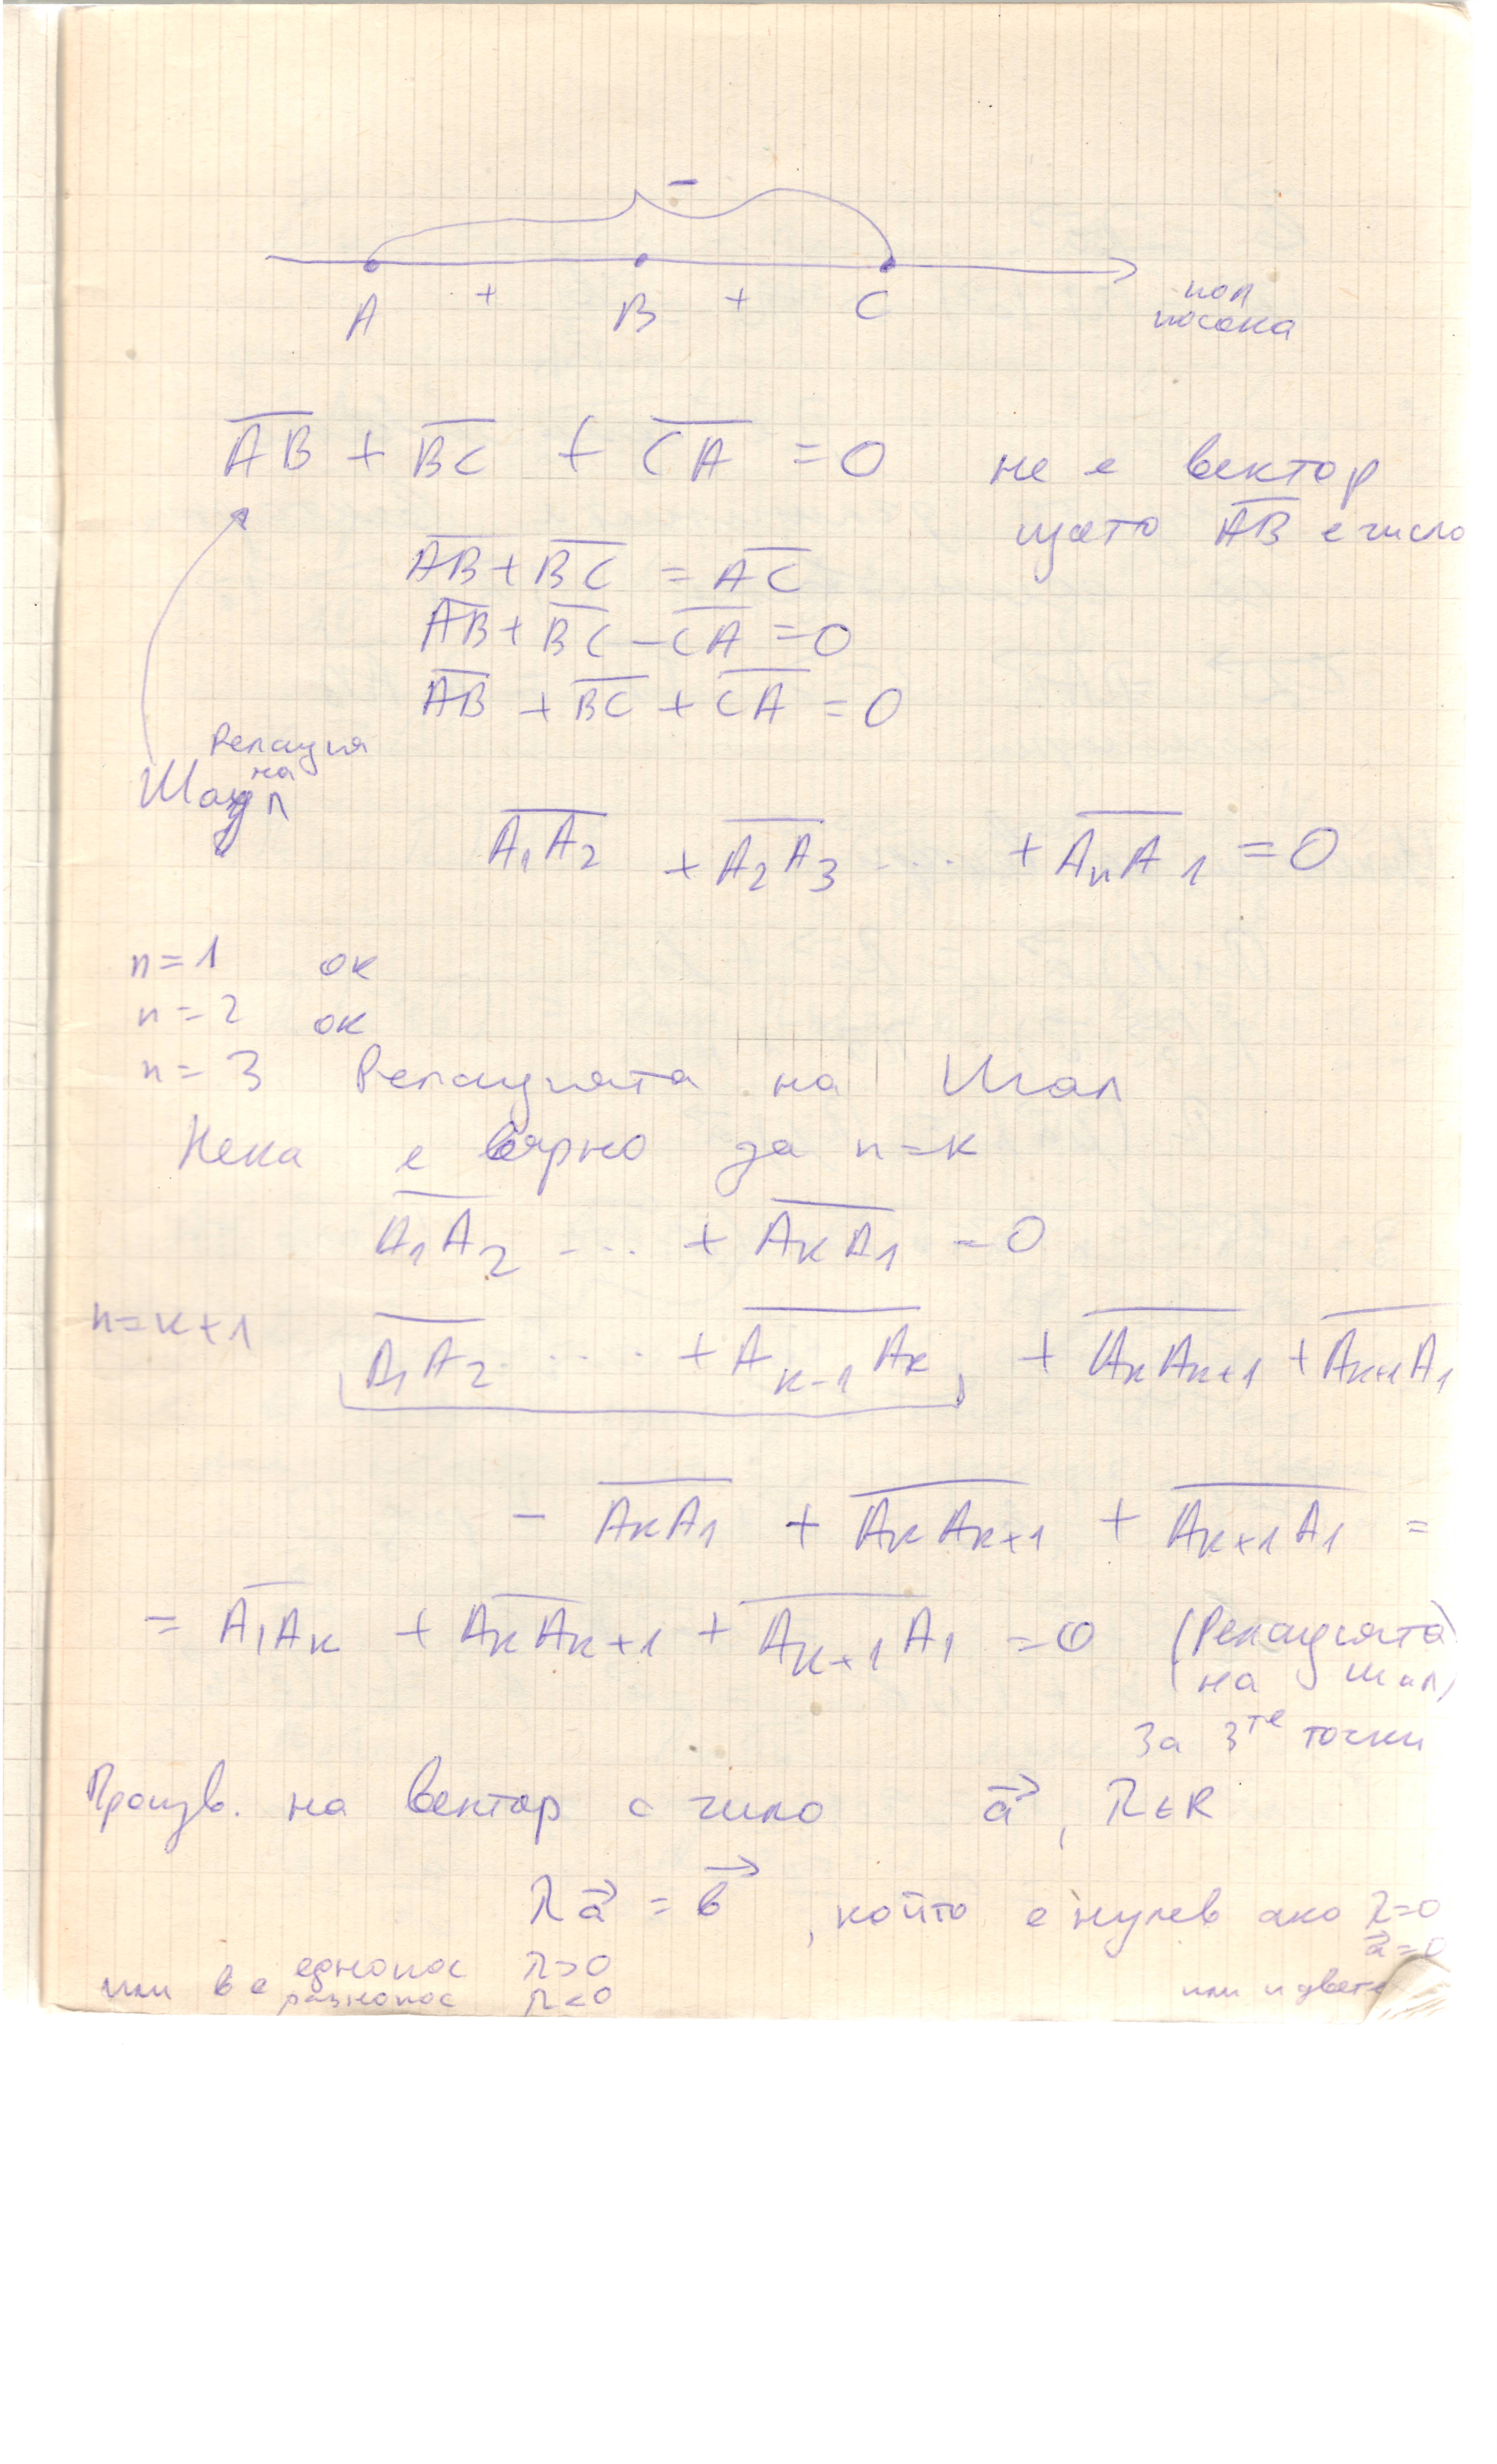 −
A + B + C
пол
посока
A̅B̅ + B̅C̅ + C̅A̅ = 0 не е вектор
щото A̅B̅ е число
A̅B̅ + B̅C̅ = A̅C̅
A̅B̅ + B̅C̅ − C̅A̅ = 0
A̅B̅ + B̅C̅ + C̅A̅ = 0
Релация
на
Шал
A̅₁A̅₂ + A̅₂A̅₃ .... + A̅ₙA̅₁ = 0
n=1 ок
n=2 ок
n=3 Релацията на Шал
Нека е вярно за n=k
A̅₁A̅₂ .... + A̅ₖA̅₁ = 0
n=k+1 A̅₁A̅₂ .... + A̅ₖ₋₁A̅ₖ + A̅ₖA̅ₖ₊₁ + A̅ₖ₊₁A̅₁
− A̅ₖA̅₁ + A̅ₖA̅ₖ₊₁ + A̅ₖ₊₁A̅₁ =
= A̅₁A̅ₖ + A̅ₖA̅ₖ₊₁ + A̅ₖ₊₁A̅₁ = 0 (Релацията
на Шал)
За 3те точки
Произв. на вектор с чило a⃗, λ∈R
λa⃗ = b⃗, който е нулев ако λ=0
a⃗=0
или и двете
или b е еднопос λ>0
разнопос λ<0